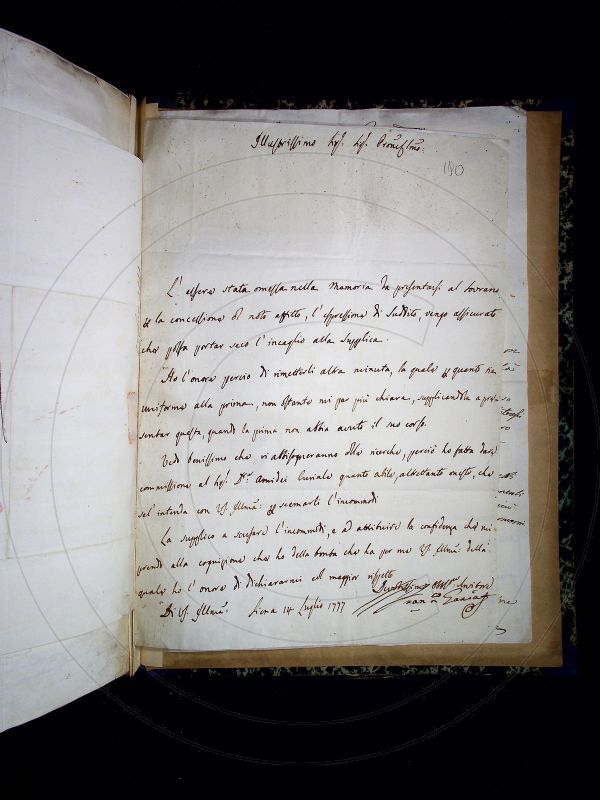 Illustrissimo Sig.r Sig.r
190
L'essere stata omessa nella Memoria da presentarsi al Sovrano
la concessione noto affitto, l'espressione di Suddito, vengo assicurato
che possa portar seco l'incaglio alla Supplica.
Ho l'onore perciò di rimetterli altra minuta, la quale quanto sia
uniforme alla prima, non ostante mi par più chiara, supplicandola a pre
sentar questa, quando la prima non abbia avuto il suo corso.
Vedo benissimo che vi abbisogneranno delle ricerche, perciò ho fatta dare
commissione al Sig.r D.r Amidei Curiale quanto abile, altrettanto onesto, che
sel' intenda con VS. Illma. scemarli l'incomodi
La supplico a scusare l'incommodi, e ad attribuire la confidenza che mi
prendo alla cognizione che ho della bontà che ha per me VS. Illma. della
quale ho l'onore di dichiararmi col maggior rispetto
Di VS. Illma. Siena 14 Luglio 1777
Servitore